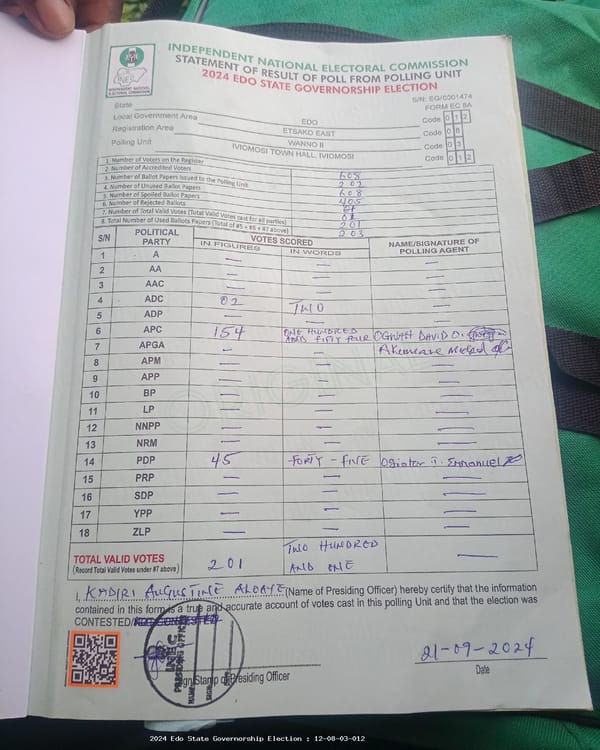 INDEPENDENT NATIONAL ELECTORAL COMMISSION
STATEMENT OF RESULT OF POLL FROM POLLING UNIT
2024 EDO STATE GOVERNORSHIP ELECTION
S/N: EG/0001474
FORM EC 8A
State EDO Code 1 2
Local Government Area ETSAKO EAST Code 0 8
Registration Area WANNO II Code 0 3
Polling Unit IVIOMOSI TOWN HALL, IVIOMOSI Code 0 1 2
1. Number of Voters on the Register 608
2. Number of Accredited Voters 202
3. Number of Ballot Papers Issued to the Polling Unit 608
4. Number of Unused Ballot Papers 405
5. Number of Spoiled Ballot Papers
6. Number of Rejected Ballots 01
7. Number of Total Valid Votes (Total Valid Votes cast for all parties) 201
8. Total Number of Used Ballots Papers (Total of #5 + #6 + #7 above) 203
S/N POLITICAL PARTY VOTES SCORED NAME/SIGNATURE OF POLLING AGENT
IN FIGURES IN WORDS
1 A — — —
2 AA — — —
3 AAC — — —
4 ADC 02 TWO —
5 ADP — — —
6 APC 154 ONE HUNDRED AND FIFTY FOUR OGWAH DAVID O.
7 APGA — —
8 APM — — —
9 APP — — —
10 BP — — —
11 LP — — —
12 NNPP — — —
13 NRM — — —
14 PDP 45 FORTY-FIVE Emmanuel
15 PRP — — —
16 SDP — — —
17 YPP — — —
18 ZLP — — —
TOTAL VALID VOTES 201 TWO HUNDRED AND ONE —
(Record Total Valid Votes under #7 above)
I, KADIRI AUGUSTINE ALOAYE (Name of Presiding Officer) hereby certify that the information
contained in this form is a true and accurate account of votes cast in this polling Unit and that the election was
CONTESTED/
INEC
PRESIDING OFFICER
Sign/Stamp of Presiding Officer
21-09-2024
Date
2024 Edo State Governorship Election : 12-08-03-012